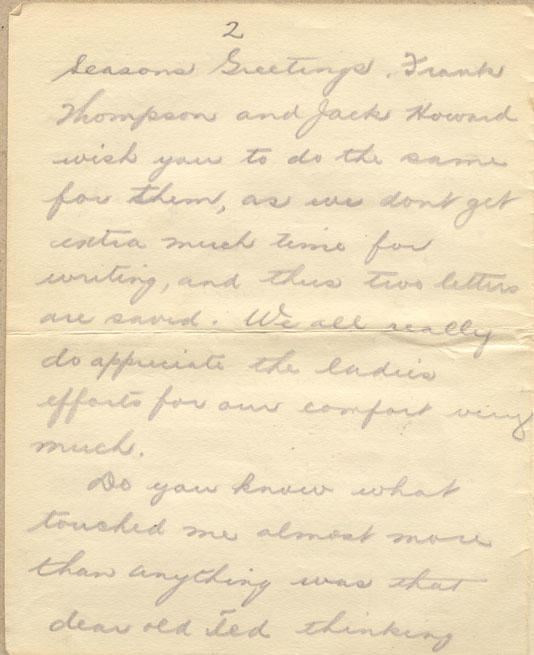 2
Seasons Greetings. Frank
Thompson and Jack Howard
wish you to do the same
for them, as we dont get
extra much time for
writing, and thus two letters
are saved. We all really
do appreciate the ladies
efforts for our comfort very
much.
Do you know what
touched me almost more
than anything was that
dear old Ted thinking